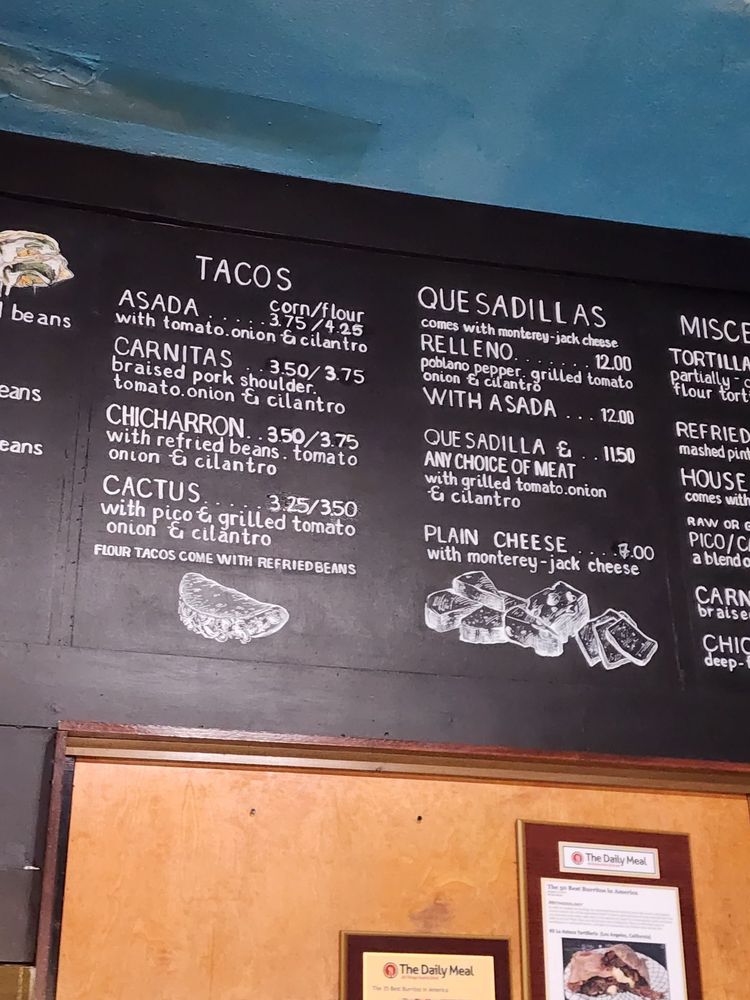 l beans
eans
eans
TACOS
corn/flour
ASADA ..... 3.75/4.25
with tomato.onion & cilantro
CARNITAS .. 3.50/3.75
braised pork shoulder.
tomato.onion & cilantro
CHICHARRON.. 3.50/3.75
with refried beans. tomato
onion & cilantro
CACTUS ...... 3.25/3.50
with pico & grilled tomato
onion & cilantro
FLOUR TACOS COME WITH REFRIED BEANS
QUESADILLAS
comes with monterey-jack cheese
RELLENO....... 12.00
poblano pepper. grilled tomato
onion & cilantro
WITH ASADA ... 12.00
QUESADILLA & .. 11.50
ANY CHOICE OF MEAT
with grilled tomato.onion
& cilantro
PLAIN CHEESE .....7.00
with monterey-jack cheese
MISCE
TORTILLA
partially-c
flour tort
REFRIED
mashed pint
HOUSE
comes with
RAW OR
PICO/CA
a blend o
CARN
braise
CHIC
deep-f
The Daily Meal
The 50 Best Burritos in America
METHODOLOGY
#3 La Azteca Tortilleria (Los Angeles, California)
The Daily Meal
The 35 Best Burritos in America